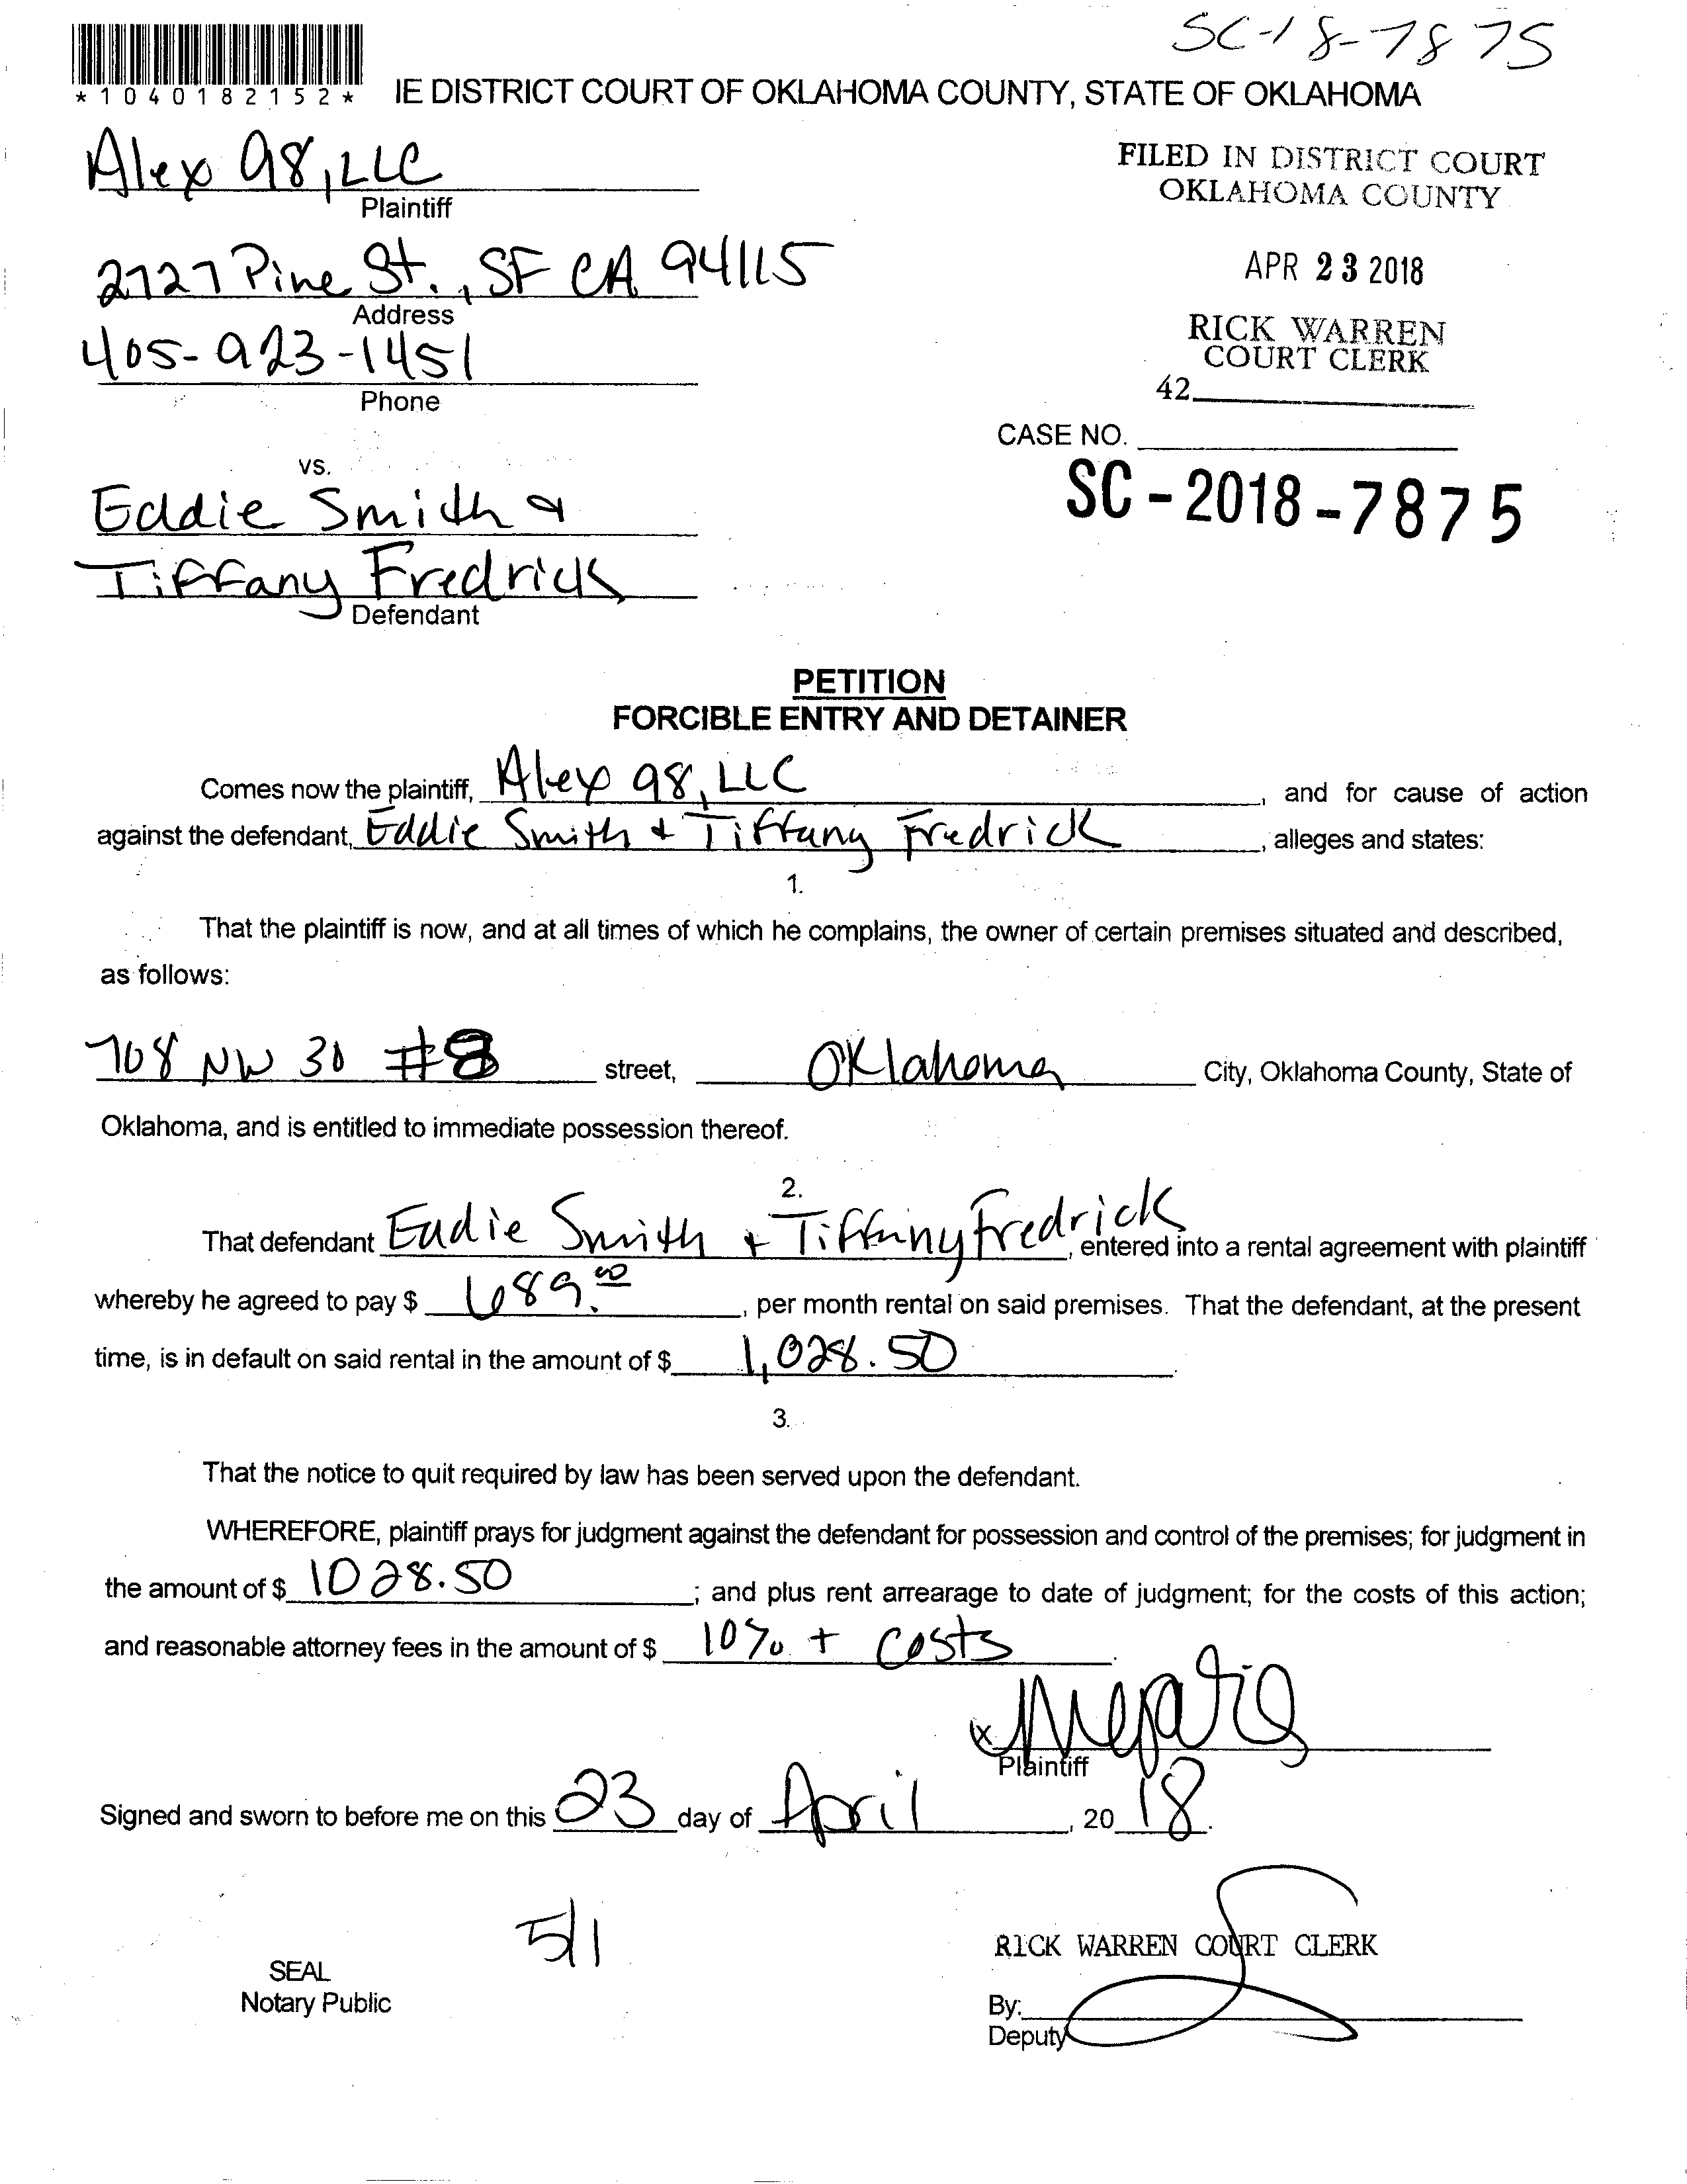 SC-18-7875
*1040182152*
IE DISTRICT COURT OF OKLAHOMA COUNTY, STATE OF OKLAHOMA
Alex 98, LLC
Plaintiff
FILED IN DISTRICT COURT
OKLAHOMA COUNTY
2727 Pine St., SF CA 94115
Address
APR 23 2018
405-923-1451
Phone
RICK WARREN
COURT CLERK
42
CASE NO.
SC-2018-7875
vs.
Eddie Smith &
Tiffany Fredrick
Defendant
PETITION
FORCIBLE ENTRY AND DETAINER
Comes now the plaintiff, Alex 98, LLC, and for cause of action
against the defendant, Eddie Smith + Tiffany Fredrick, alleges and states:
1.
That the plaintiff is now, and at all times of which he complains, the owner of certain premises situated and described,
as follows:
708 NW 30 #8 street, Oklahoma City, Oklahoma County, State of
Oklahoma, and is entitled to immediate possession thereof.
2.
That defendant Eddie Smith + Tiffany Fredrick, entered into a rental agreement with plaintiff
whereby he agreed to pay $ 689.00, per month rental on said premises. That the defendant, at the present
time, is in default on said rental in the amount of $ 1,028.50.
3.
That the notice to quit required by law has been served upon the defendant.
WHEREFORE, plaintiff prays for judgment against the defendant for possession and control of the premises; for judgment in
the amount of $ 1028.50; and plus rent arrearage to date of judgment; for the costs of this action;
and reasonable attorney fees in the amount of $ 10% + costs.
x
Plaintiff
Signed and sworn to before me on this 23 day of April, 20 18.
5/1
SEAL
Notary Public
RICK WARREN COURT CLERK
By:
Deputy